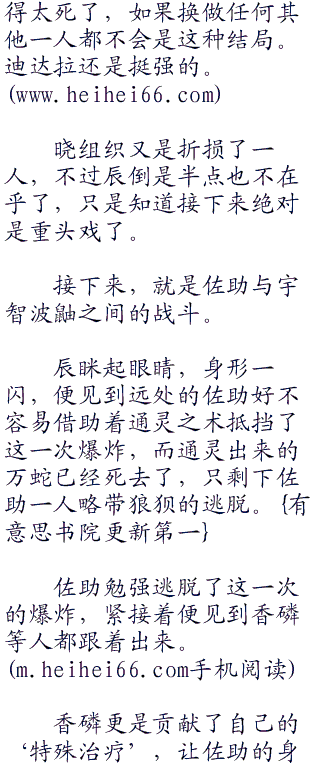 得太死了，如果换做任何其
他一人都不会是这种结局。
迪达拉还是挺强的。
(www.heihei66.com)
晓组织又是折损了一
人，不过辰倒是半点也不在
乎了，只是知道接下来绝对
是重头戏了。
接下来，就是佐助与宇
智波鼬之间的战斗。
辰眯起眼睛，身形一
闪，便见到远处的佐助好不
容易借助着通灵之术抵挡了
这一次爆炸，而通灵出来的
万蛇已经死去了，只剩下佐
助一人略带狼狈的逃脱。{有
意思书院更新第一}
佐助勉强逃脱了这一次
的爆炸，紧接着便见到香磷
等人都跟着出来。
(m.heihei66.com手机阅读)
香磷更是贡献了自己的
‘特殊治疗’，让佐助的身